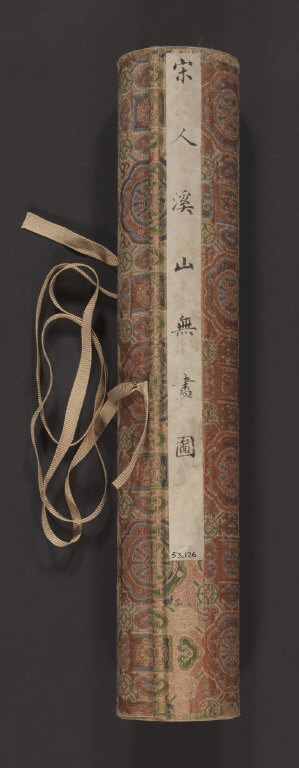 宋人溪山無盡圖
53.126